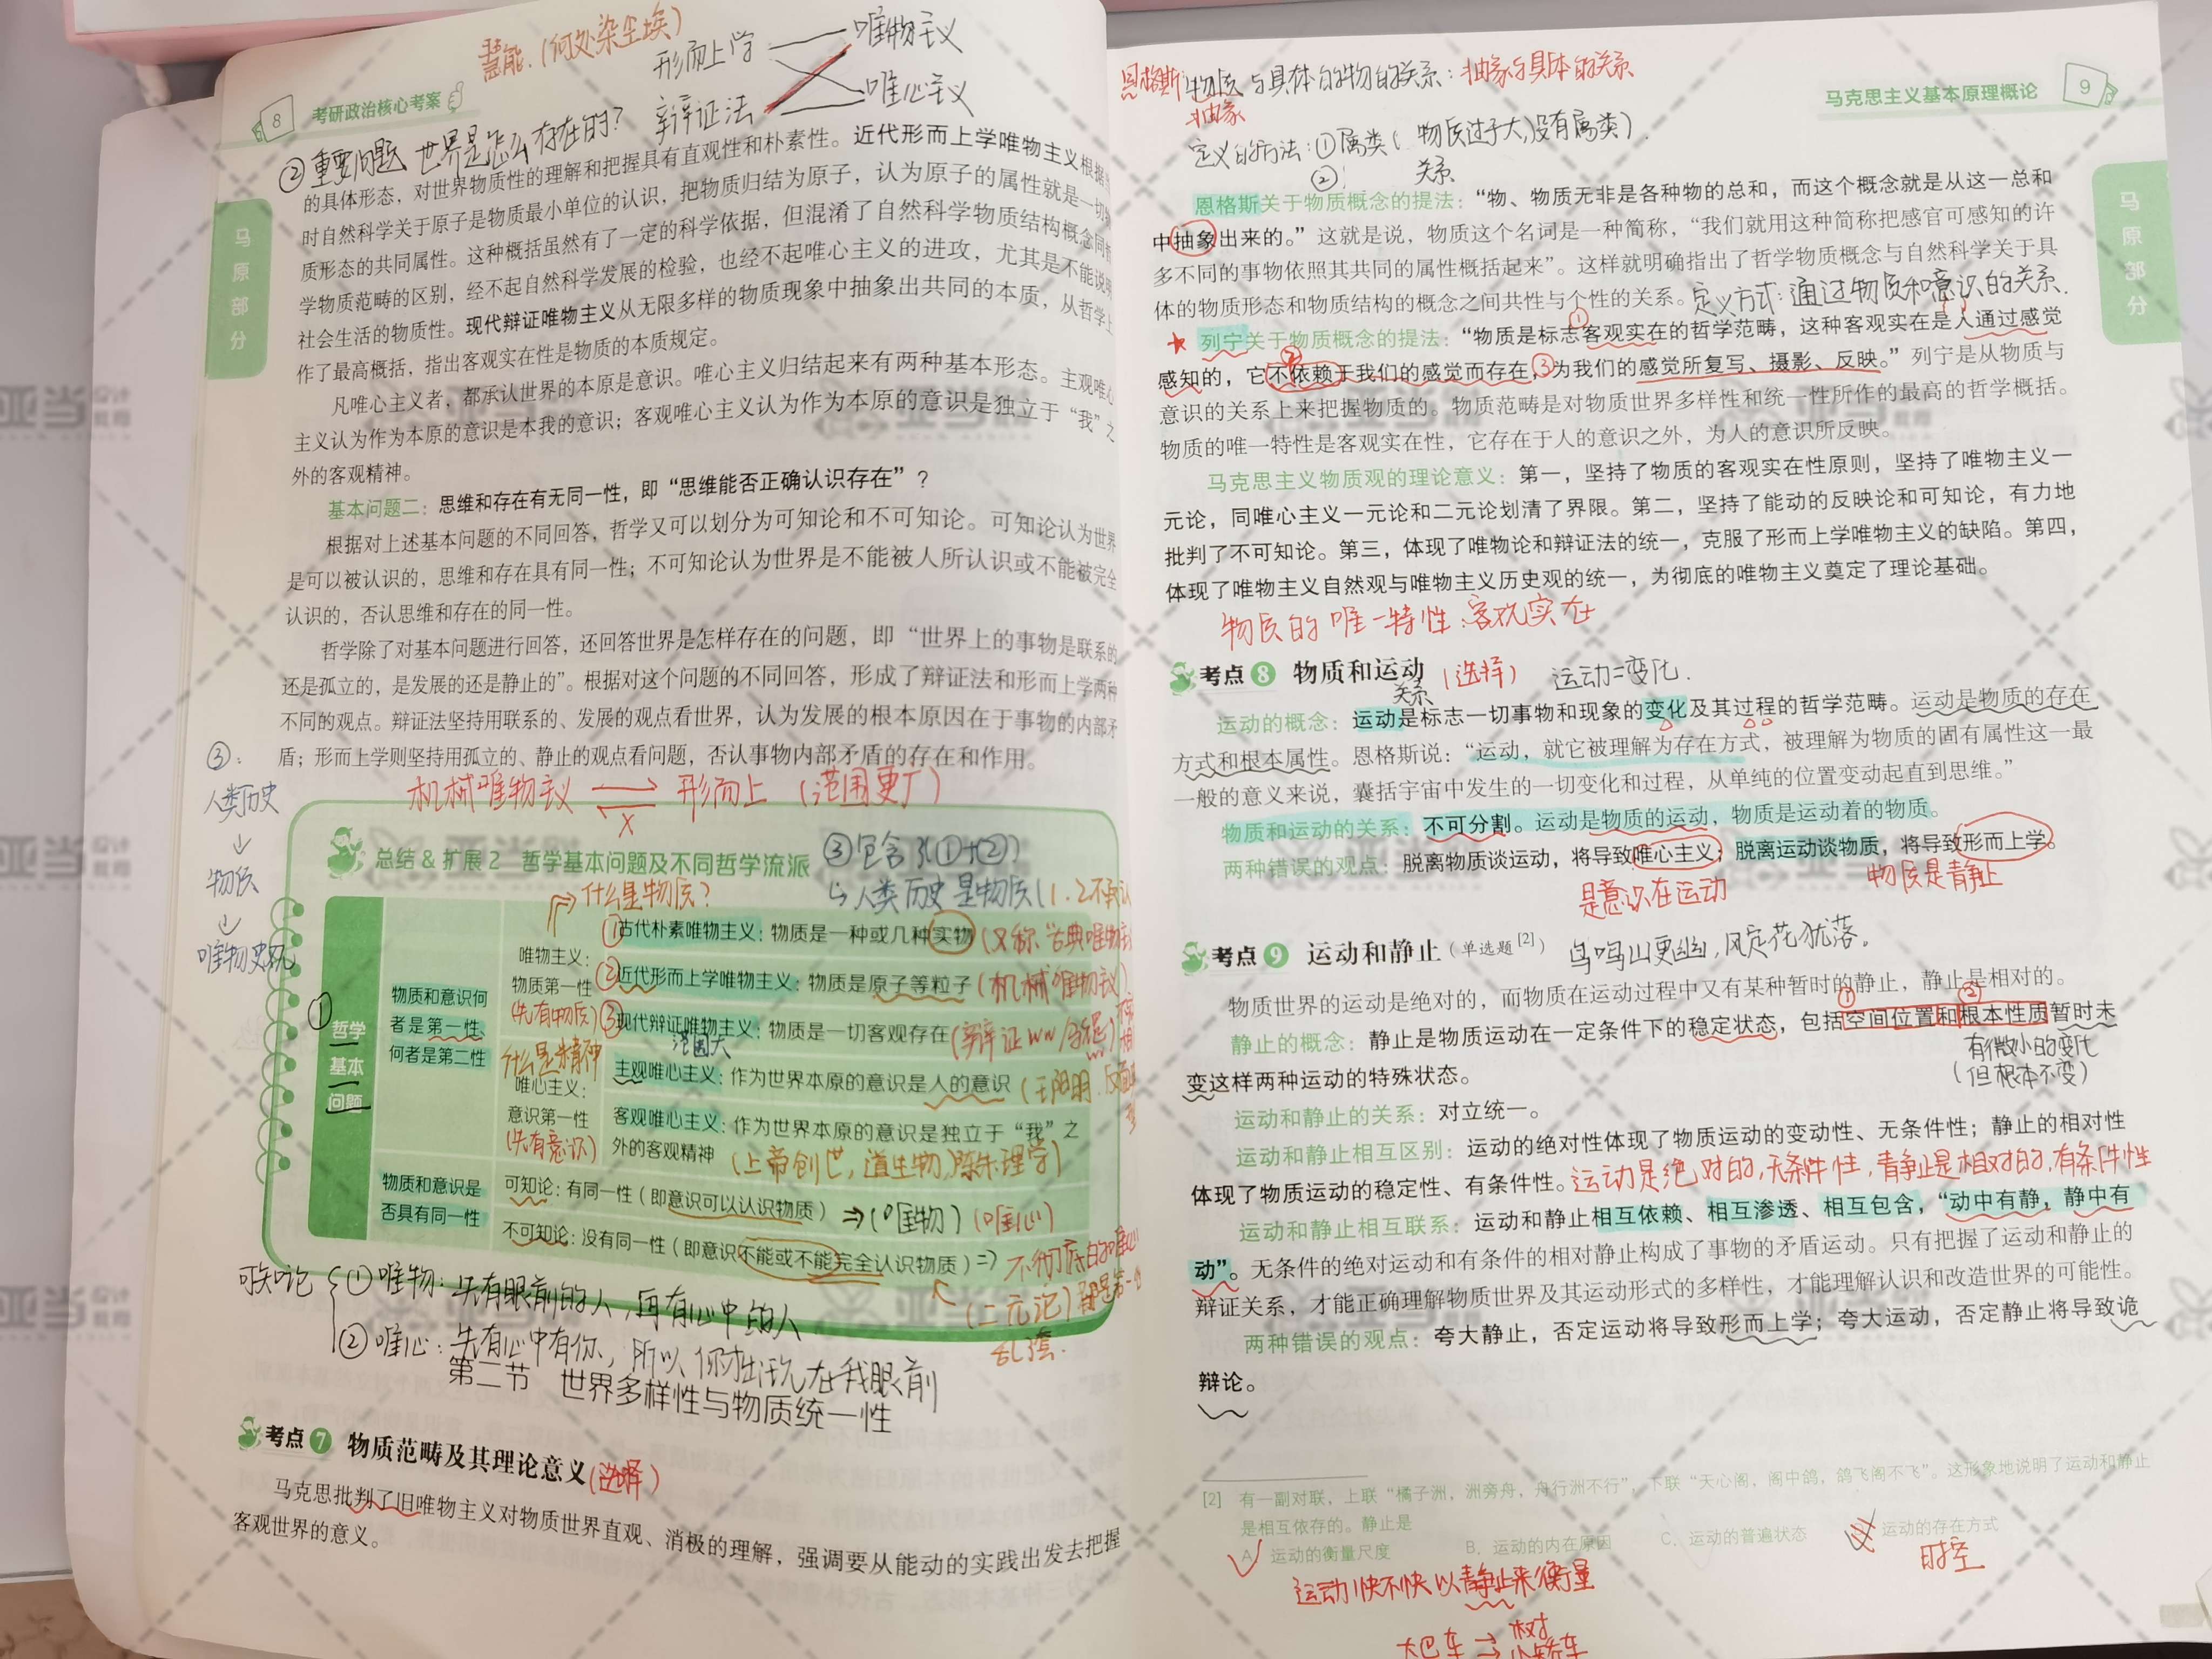 慧能.(何处染尘埃)
形而上学
唯物主义
辩证法
唯心主义
8
考研政治核心考案
②重要问题 世界是怎么存在的?
的具体形态，对世界物质性的理解和把握具有直观性和朴素性。近代形而上学唯物主义根据
时自然科学关于原子是物质最小单位的认识，把物质归结为原子，认为原子的属性就是一切
质形态的共同属性。这种概括虽然有了一定的科学依据，但混淆了自然科学物质结构概念同
学物质范畴的区别，经不起自然科学发展的检验，也经不起唯心主义的进攻，尤其是不能说明
社会生活的物质性。现代辩证唯物主义从无限多样的物质现象中抽象出共同的本质，从哲学上
作了最高概括，指出客观实在性是物质的本质规定。
凡唯心主义者，都承认世界的本原是意识。唯心主义归结起来有两种基本形态。主观唯心
主义认为作为本原的意识是本我的意识；客观唯心主义认为作为本原的意识是独立于“我”之
外的客观精神。
基本问题二：思维和存在有无同一性，即“思维能否正确认识存在”？
根据对上述基本问题的不同回答，哲学又可以划分为可知论和不可知论。可知论认为世界
是可以被认识的，思维和存在具有同一性；不可知论认为世界是不能被人所认识或不能被完全
认识的，否认思维和存在的同一性。
哲学除了对基本问题进行回答，还回答世界是怎样存在的问题，即“世界上的事物是联系的
还是孤立的，是发展的还是静止的”。根据对这个问题的不同回答，形成了辩证法和形而上学两种
不同的观点。辩证法坚持用联系的、发展的观点看世界，认为发展的根本原因在于事物的内部矛
盾；形而上学则坚持用孤立的、静止的观点看问题，否认事物内部矛盾的存在和作用。
机械唯物主义 形而上 (范围更广)
X
③:
人类历史
↓
物质
↓
唯物史观
马原部分
总结&扩展2 哲学基本问题及不同哲学流派
③包含
人类历史是物质
什么是物质?
①
哲学基本问题
物质和意识何者是第一性、何者是第二性
唯物主义：物质第一性
(先有物质)
①古代朴素唯物主义：物质是一种或几种实物
②近代形而上学唯物主义：物质是原子等粒子(机械唯物主义)
③现代辩证唯物主义：物质是一切客观存在
范围大
什么是精神
唯心主义：意识第一性
(先有意识)
主观唯心主义：作为世界本原的意识是人的意识
客观唯心主义：作为世界本原的意识是独立于“我”之
外的客观精神
物质和意识是否具有同一性
可知论：有同一性（即意识可以认识物质）⇒(唯物)(唯心)
不可知论：没有同一性（即意识不能或不能完全认识物质）⇒
不彻底的
(二元论)
可知论
①唯物：先有眼前的人,再有心中的人
②唯心：先有心中有你,所以你才出现在我眼前
第二节 世界多样性与物质统一性
考点7 物质范畴及其理论意义(选择)
马克思批判了旧唯物主义对物质世界直观、消极的理解，强调要从能动的实践出发去把握
客观世界的意义。
马克思主义基本原理概论
9
恩格斯:物质与具体的物的关系:抽象与具体的关系
抽象
定义的方法:①属类(物质过于大,没有属类).
②
关系
恩格斯关于物质概念的提法：“物、物质无非是各种物的总和，而这个概念就是从这一总和
中抽象出来的。”这就是说，物质这个名词是一种简称，“我们就用这种简称把感官可感知的许
多不同的事物依照其共同的属性概括起来”。这样就明确指出了哲学物质概念与自然科学关于具
体的物质形态和物质结构的概念之间共性与个性的关系。定义方式:通过物质和意识的关系.
★列宁关于物质概念的提法：“物质是标志客观实在的哲学范畴，这种客观实在是人通过感觉
感知的，它不依赖于我们的感觉而存在，③为我们的感觉所复写、摄影、反映。”列宁是从物质与
意识的关系上来把握物质的。物质范畴是对物质世界多样性和统一性所作的最高的哲学概括。
物质的唯一特性是客观实在性，它存在于人的意识之外，为人的意识所反映。
马克思主义物质观的理论意义：第一，坚持了物质的客观实在性原则，坚持了唯物主义一
元论，同唯心主义一元论和二元论划清了界限。第二，坚持了能动的反映论和可知论，有力地
批判了不可知论。第三，体现了唯物论和辩证法的统一，克服了形而上学唯物主义的缺陷。第四，
体现了唯物主义自然观与唯物主义历史观的统一，为彻底的唯物主义奠定了理论基础。
物质的唯一特性:客观实在
考点8 物质和运动(选择) 运动=变化.
关系
运动的概念：运动是标志一切事物和现象的变化及其过程的哲学范畴。运动是物质的存在
方式和根本属性。恩格斯说：“运动，就它被理解为存在方式，被理解为物质的固有属性这一最
一般的意义来说，囊括宇宙中发生的一切变化和过程，从单纯的位置变动起直到思维。”
物质和运动的关系：不可分割。运动是物质的运动，物质是运动着的物质。
两种错误的观点：脱离物质谈运动，将导致唯心主义；脱离运动谈物质，将导致形而上学。
是意识在运动
物质是静止
考点9 运动和静止（单选题[2]） 鸟鸣山更幽,风定花犹落。
物质世界的运动是绝对的，而物质在运动过程中又有某种暂时的静止，静止是相对的。
静止的概念：静止是物质运动在一定条件下的稳定状态，包括空间位置和根本性质暂时未
变这样两种运动的特殊状态。
有微小的变化
(但根本不变)
运动和静止的关系：对立统一。
运动和静止相互区别：运动的绝对性体现了物质运动的变动性、无条件性；静止的相对性
体现了物质运动的稳定性、有条件性。运动是绝对的,无条件性,静止是相对的,有条件性
运动和静止相互联系：运动和静止相互依赖、相互渗透、相互包含，“动中有静，静中有
动”。无条件的绝对运动和有条件的相对静止构成了事物的矛盾运动。只有把握了运动和静止的
辩证关系，才能正确理解物质世界及其运动形式的多样性，才能理解认识和改造世界的可能性。
两种错误的观点：夸大静止，否定运动将导致形而上学；夸大运动，否定静止将导致诡
辩论。
马原部分
[2] 有一副对联，上联“橘子洲，洲旁舟，舟行洲不行”，下联“天心阁，阁中鸽，鸽飞阁不飞”。这形象地说明了运动和静止
是相互依存的。静止是
A. 运动的衡量尺度 B. 运动的内在原因 C. 运动的普遍状态 D. 运动的存在方式
时空
运动快不快以静止来衡量
大巴车→树
小轿车
亚当